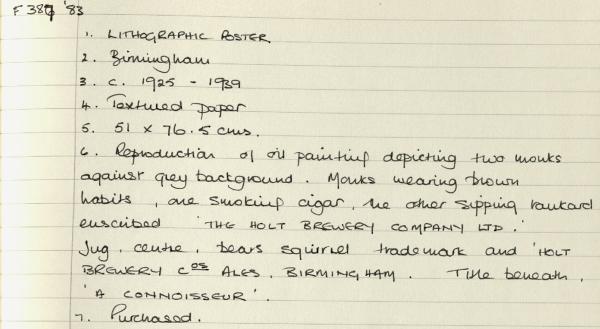 F 387 '83
1. LITHOGRAPHIC POSTER
2. Birmingham
3. c. 1925 - 1939
4. Textured paper
5. 51 x 76.5 cms.
6. Reproduction of oil painting depicting two monks
against grey background. Monks wearing brown
habits, one smoking cigar, the other sipping tankard
enscribed 'THE HOLT BREWERY COMPANY LTD.'
Jug, centre, bears squirrel trademark and 'HOLT
BREWERY COS ALES, BIRMINGHAM. Title beneath,
'A CONNOISSEUR'.
7. Purchased.